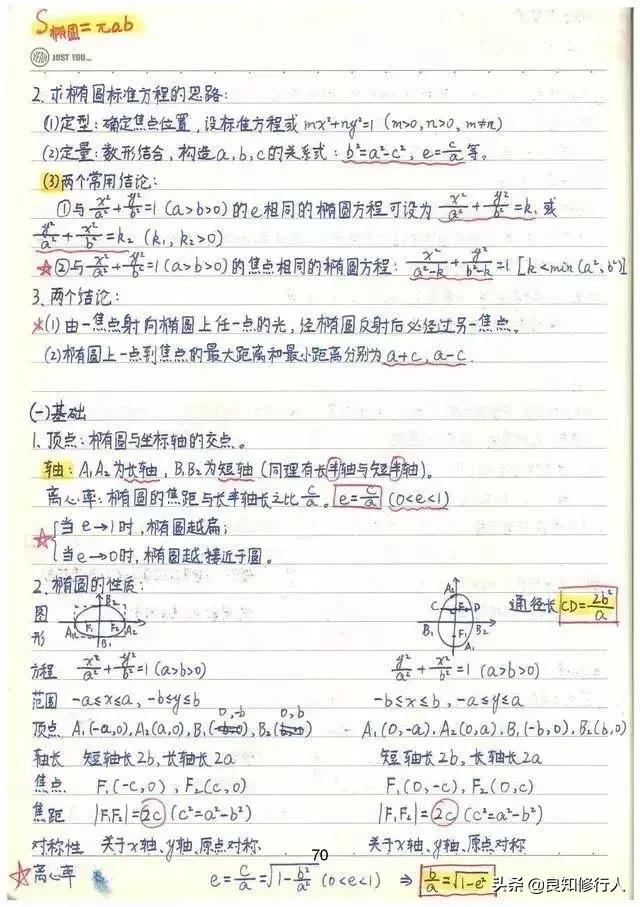 S椭圆=πab
YEAH JUST YOU...
2. 求椭圆标准方程的思路:
(1)定型:确定焦点位置,设标准方程或 mx²+ny²=1 (m>0,n>0,m≠n)
(2)定量:数形结合,构造a,b,c的关系式: b²=a²-c², e=c/a 等。
(3)两个常用结论:
①与 x²/a²+y²/b²=1 (a>b>0) 的e相同的椭圆方程可设为 x²/a²+y²/b²=k₁ 或
y²/a²+x²/b²=k₂ (k₁,k₂>0)
☆②与 x²/a²+y²/b²=1 (a>b>0) 的焦点相同的椭圆方程: x²/(a²-k)+y²/(b²-k)=1 [k<min(a²,b²)]
3. 两个结论:
☆(1)由一焦点射向椭圆上任一点的光,经椭圆反射后必经过另一焦点。
(2)椭圆上一点到焦点的最大距离和最小距离分别为a+c, a-c.
(一)基础
1. 顶点:椭圆与坐标轴的交点。
轴:A₁A₂为长轴,B₁B₂为短轴(同理有长半轴与短半轴)。
离心率:椭圆的焦距与长半轴长之比 c/a。 e=c/a (0<e<1)
☆{当e→1时,椭圆越扁;
当e→0时,椭圆越接近于圆。
2. 椭圆的性质:
图形 A₁ F₁ F₂ A₂ B₂ B₁ A₂ C F₂ D B₁ B₂ F₁ A₁ 通径长 CD=2b²/a
方程 x²/a²+y²/b²=1 (a>b>0) y²/a²+x²/b²=1 (a>b>0)
范围 -a≤x≤a, -b≤y≤b -b≤x≤b, -a≤y≤a
0,-b 0,b
顶点 A₁(-a,0),A₂(a,0),B₁( ),B₂( ) A₁(0,-a),A₂(0,a),B₁(-b,0),B₂(b,0)
轴长 短轴长2b,长轴长2a 短轴长2b,长轴长2a
焦点 F₁(-c,0),F₂(c,0) F₁(0,-c),F₂(0,c)
焦距 |F₁F₂|=2c (c²=a²-b²) |F₁F₂|=2c (c²=a²-b²)
对称性 关于x轴、y轴、原点对称. 关于x轴、y轴、原点对称
70
☆离心率 e=c/a=√(1-b²/a²) (0<e<1) ⇒ b/a=√(1-e²)
头条 @良知修行人